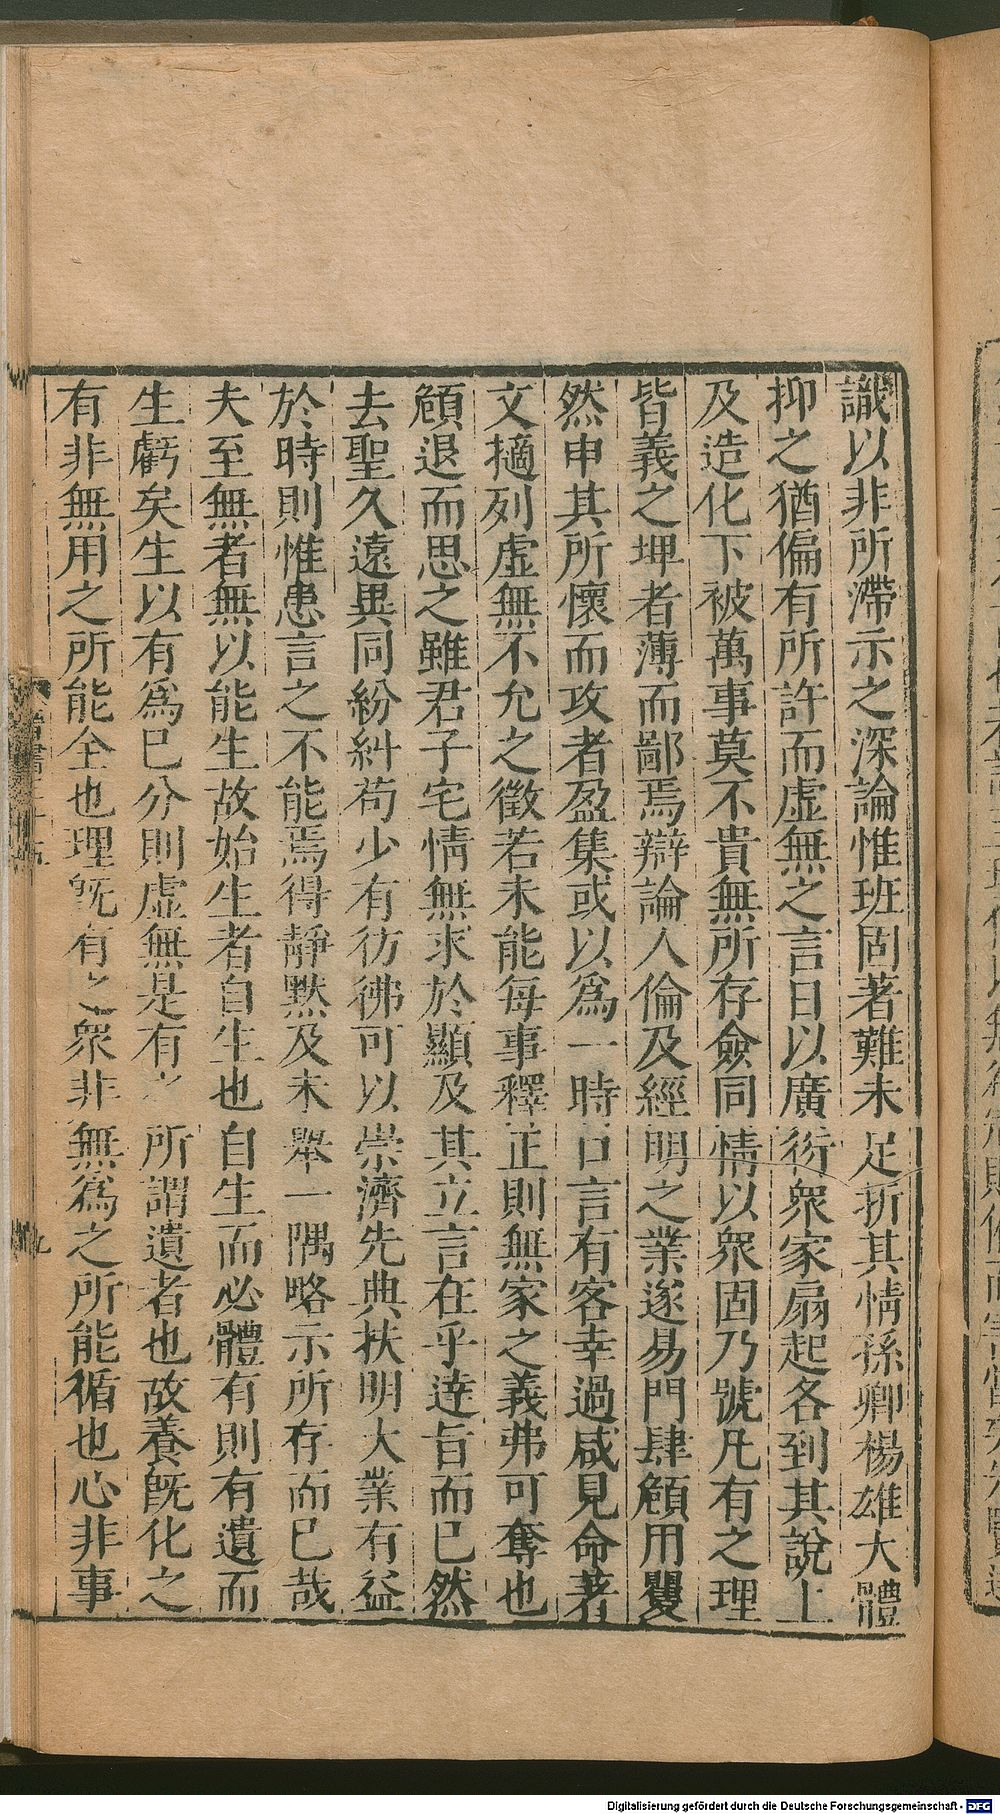 識以非所滯示之深論惟班固著難未足折其情孫卿楊雄大體
抑之猶偏有所許而虛無之言日以廣衍衆家扇起各到其說上
及造化下被萬事莫不貴無所存僉同情以衆固乃號凡有之理
皆義之埤者薄而鄙焉辯論人倫及經明之業遂易門肆頠用矍
然申其所懷而攻者盈集或以爲一時口言有客幸過咸見命著
文擿列虛無不允之徵若未能每事釋正則無家之義弗可奪也
頠退而思之雖君子宅情無求於顯及其立言在乎達旨而已然
去聖久遠異同紛糾苟少有彷彿可以崇濟先典扶明大業有益
於時則惟患言之不能焉得靜默及未舉一隅略示所存而已哉
夫至無者無以能生故始生者自生也自生而必體有則有遺而
生虧矣生以有爲已分則虛無是有之所謂遺者也故養旣化之
有非無用之所能全也理旣有之衆非無爲之所能循也心非事
九
Digitalisierung gefördert durch die Deutsche Forschungsgemeinschaft - DFG